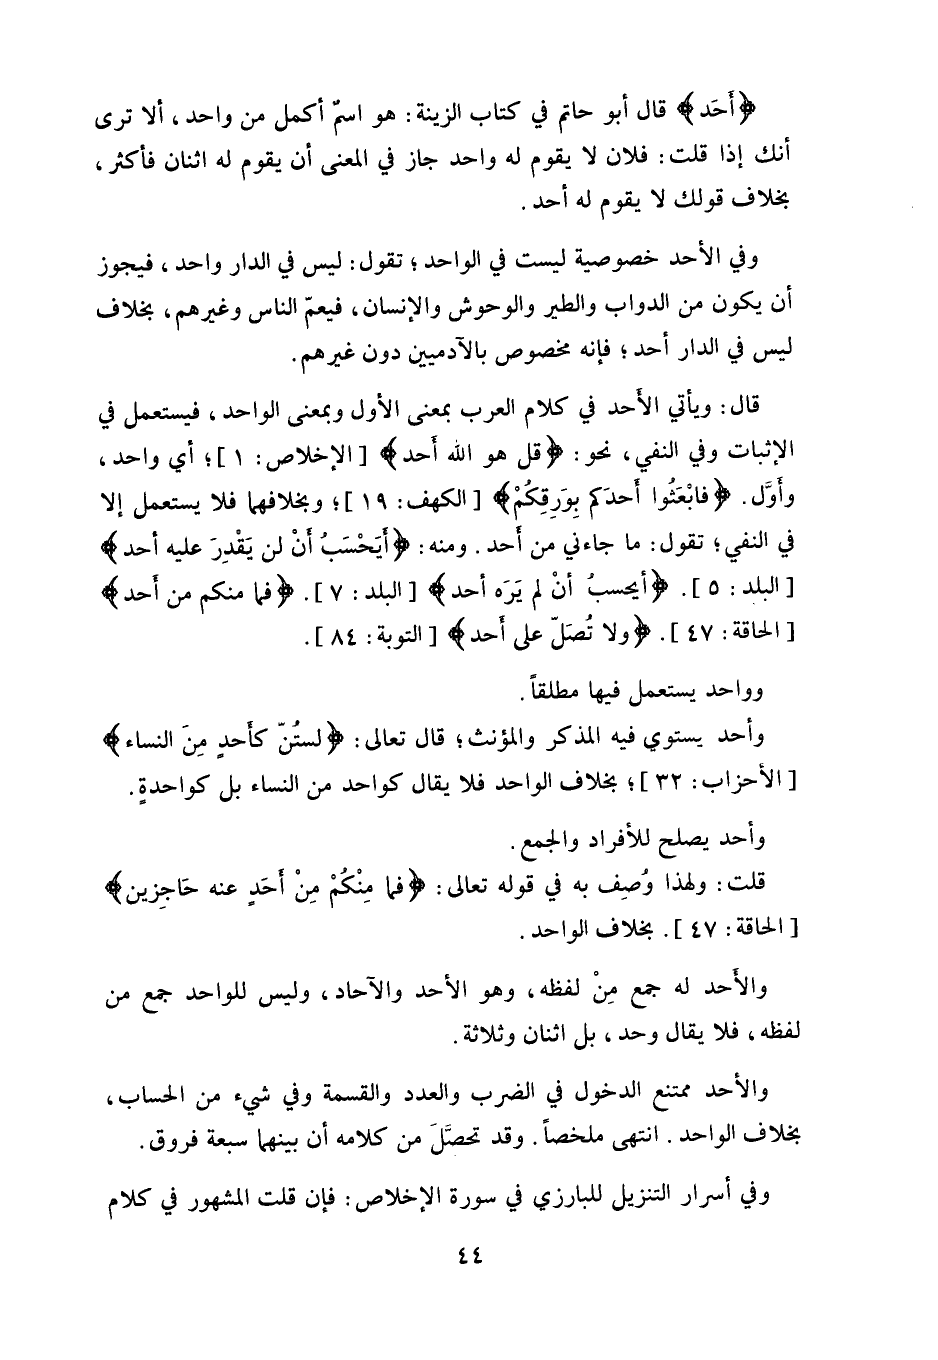 ﴿أَحَد﴾ قال أبو حاتم في كتاب الزينة: هو اسمٌ أكمل من واحد، ألا ترى
أنك إذا قلت: فلان لا يقوم له واحد جاز في المعنى أن يقوم له اثنان فأكثر،
بخلاف قولك لا يقوم له أحد.
وفي الأحد خصوصية ليست في الواحد؛ تقول: ليس في الدار واحد، فيجوز
أن يكون من الدواب والطير والوحوش والإنسان، فيعمّ الناس وغيرهم، بخلاف
ليس في الدار أحد؛ فإنه مخصوص بالآدميين دون غيرهم.
قال: ويأتي الأَحد في كلام العرب بمعنى الأول وبمعنى الواحد، فيستعمل في
الإثبات وفي النفي، نحو: ﴿قل هو الله أَحد﴾ [الإخلاص: ١]؛ أي واحد،
وأوَّل. ﴿فابْعَثُوا أَحدَكم بِوَرِقِكُمْ﴾ [الكهف: ١٩]؛ وبخلافهما فلا يستعمل إلا
في النفي؛ تقول: ما جاءني من أَحد. ومنه: ﴿أيَحْسَبُ أَنْ لن يَقْدِرَ عليه أحد﴾
[البلد: ٥]. ﴿أيحسبُ أنْ لم يَرَه أحد﴾ [البلد: ٧]. ﴿فما منكم من أَحد﴾
[الحاقة: ٤٧]. ﴿ولا تُصَلّ على أَحد﴾ [التوبة: ٨٤].
وواحد يستعمل فيها مطلقاً.
وأحد يستوي فيه المذكر والمؤنث؛ قال تعالى: ﴿لستُنّ كأَحدٍ مِنَ النساء﴾
[الأحزاب: ٣٢]؛ بخلاف الواحد فلا يقال كواحد من النساء بل كواحدةٍ.
وأحد يصلح للأفراد والجمع.
قلت: ولهذا وُصِف به في قوله تعالى: ﴿فما مِنْكُمْ مِنْ أَحَدٍ عنه حَاجِزين﴾
[الحاقة: ٤٧]. بخلاف الواحد.
والأَحد له جمع مِنْ لفظه، وهو الأحد والآحاد، وليس للواحد جمع من
لفظه، فلا يقال وحد، بل اثنان وثلاثة.
والأحد ممتنع الدخول في الضرب والعدد والقسمة وفي شيء من الحساب،
بخلاف الواحد. انتهى ملخصاً. وقد تحصَّلَ من كلامه أن بينهما سبعة فروق.
وفي أسرار التنزيل للبارزي في سورة الإخلاص: فإن قلت المشهور في كلام
٤٤